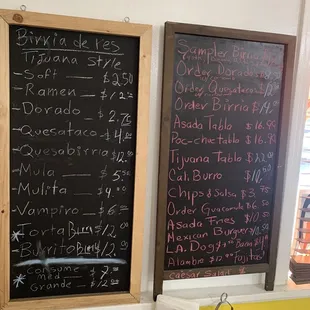 Birria de res
Tijuana Style
Soft — $2.50
Ramen — $12.
Dorado — $2.75
Quesataco — $4.
Quesabirria $12.
Mula — $5.50
Mulita — $4.00
Vampiro — $6.
Torta Birria $12.
Burrito Birria $12.
Consume
med — $7.
Grande — $12.
Sampler Birria
Order Dorado
Order Quesataco $
Order Birria $14.
Asada Tabla $16.
Poc-chuc tabla $16.
Tijuana Tabla $
Cali Burro $10.
Chips & Salsa $3.75
Order Guacamole $6.
Asada Fries $10.50
Mexican Burger
L.A. Dog
Alambre Fajitas
caesar Salad